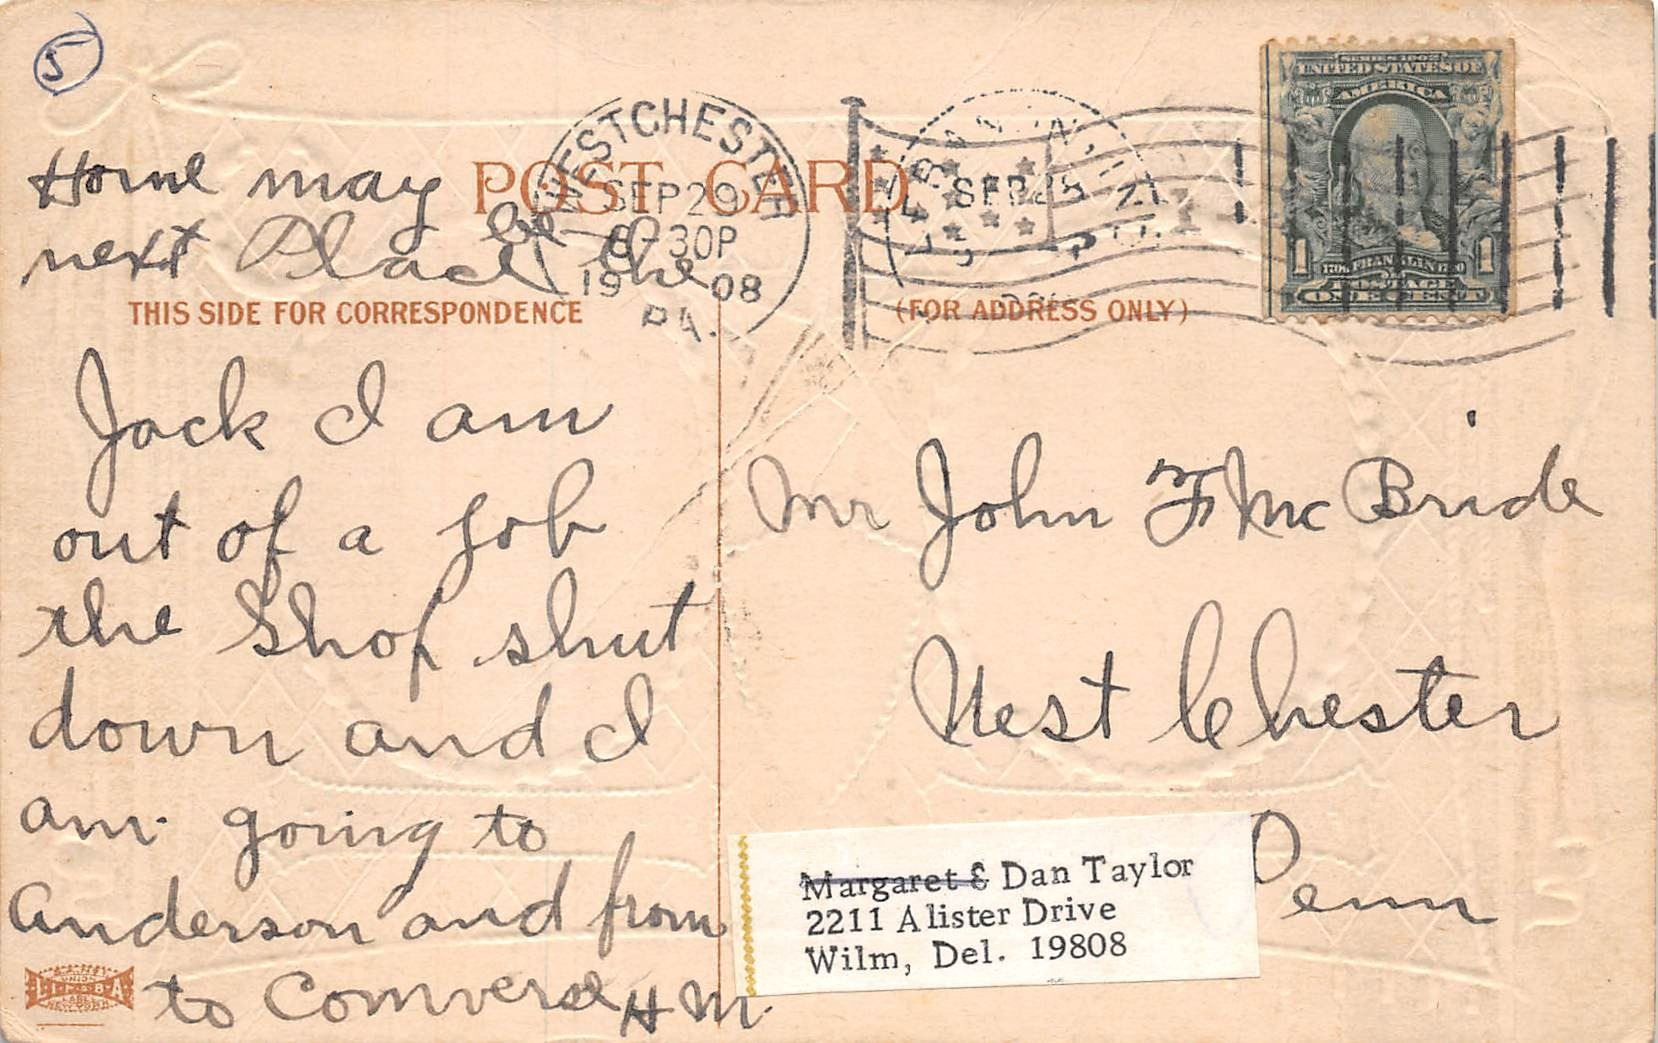 5
Home may be the
next Place
POST CARD
THIS SIDE FOR CORRESPONDENCE
(FOR ADDRESS ONLY)
WESTCHESTER
SEP 29
8-30P
1908
PA.
SEP 28
SERIES 1902
UNITED STATES OF
AMERICA
1706 FRANKLIN 1790
POSTAGE
1 ONE CENT 1
Jack I am
out of a job
the Shop shut
down and I
am going to
Anderson and from
to Converse H M.
Mr John F Mc Bride
West Chester
Penn
Margaret & Dan Taylor
2211 Alister Drive
Wilm, Del. 19808